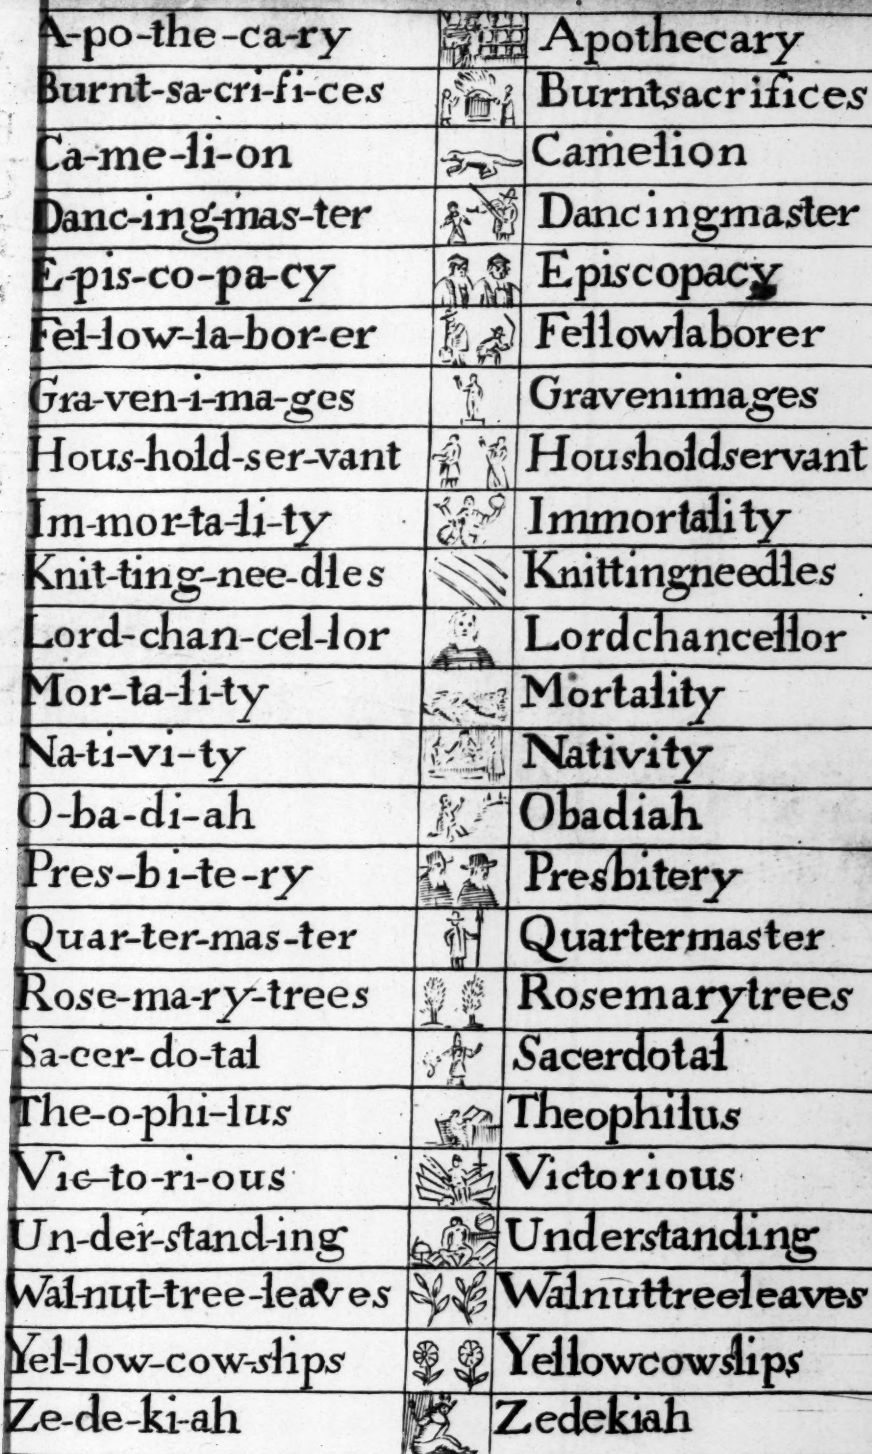 A-po-the-ca-ry Apothecary
Burnt-sa-cri-fi-ces Burntsacrifices
Ca-me-li-on Camelion
Danc-ing-mas-ter Dancingmaster
E-pis-co-pa-cy Episcopacy
Fel-low-la-bor-er Fellowlaborer
Gra-ven-i-ma-ges Gravenimages
Hous-hold-ser-vant Housholdservant
Im-mor-ta-li-ty Immortality
Knit-ting-nee-dles Knittingneedles
Lord-chan-cel-lor Lordchancellor
Mor-ta-li-ty Mortality
Na-ti-vi-ty Nativity
O-ba-di-ah Obadiah
Pres-bi-te-ry Presbitery
Quar-ter-mas-ter Quartermaster
Rose-ma-ry-trees Rosemarytrees
Sa-cer-do-tal Sacerdotal
The-o-phi-lus Theophilus
Vic-to-ri-ous Victorious
Un-der-stand-ing Understanding
Wal-nut-tree-leaves Walnuttreeleaves
Yel-low-cow-slips Yellowcowslips
Ze-de-ki-ah Zedekiah